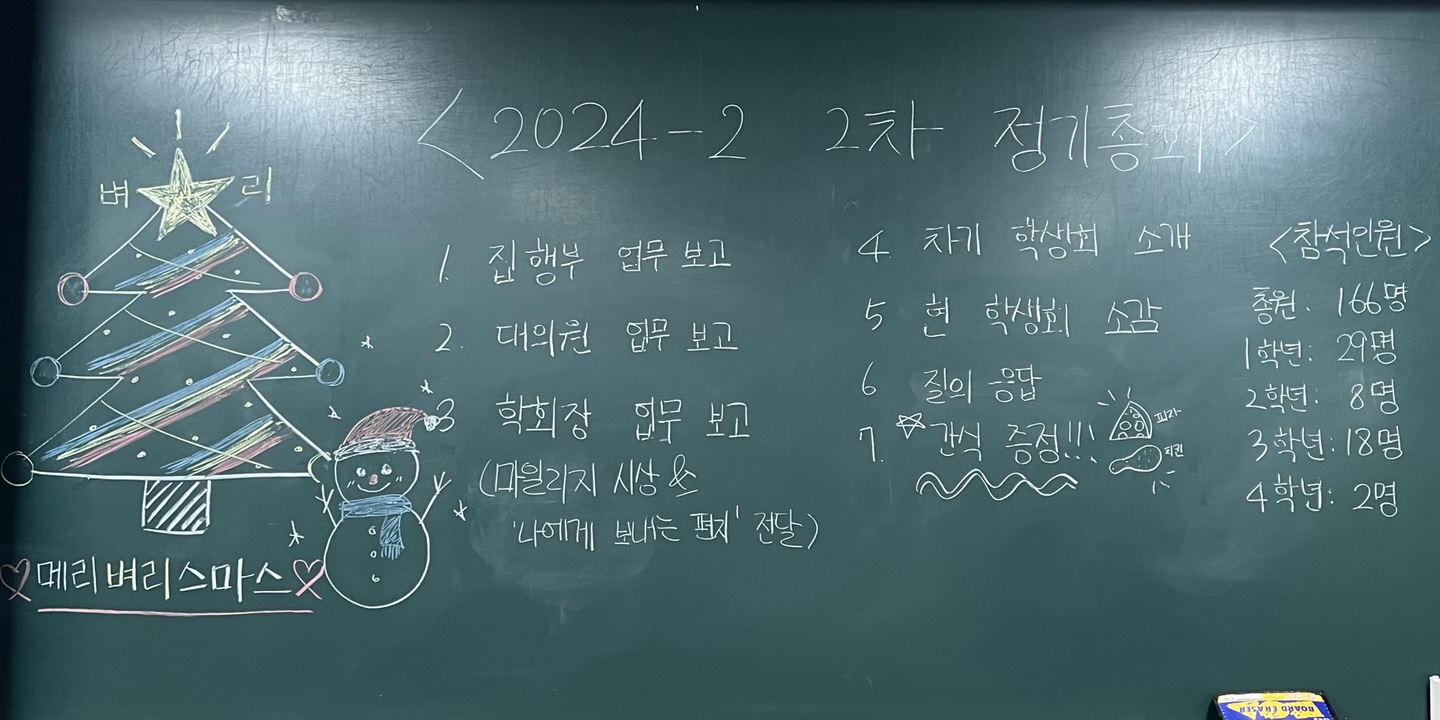 <2024-2 2차 정기총회>
벼 리
1. 집행부 업무 보고
2. 대의원 업무 보고
3 학회장 업무 보고
(마일리지 시상 &
'나에게 보내는 편지' 전달)
4. 차기 학생회 소개
5 현 학생회 소감
6 질의 응답
7. ☆간식 증정!!
피자
치킨
<참석인원>
총원: 166명
1학년: 29명
2학년: 8명
3학년: 18명
4학년: 2명
♡메리벼리스마스♡
BOARD ERASER